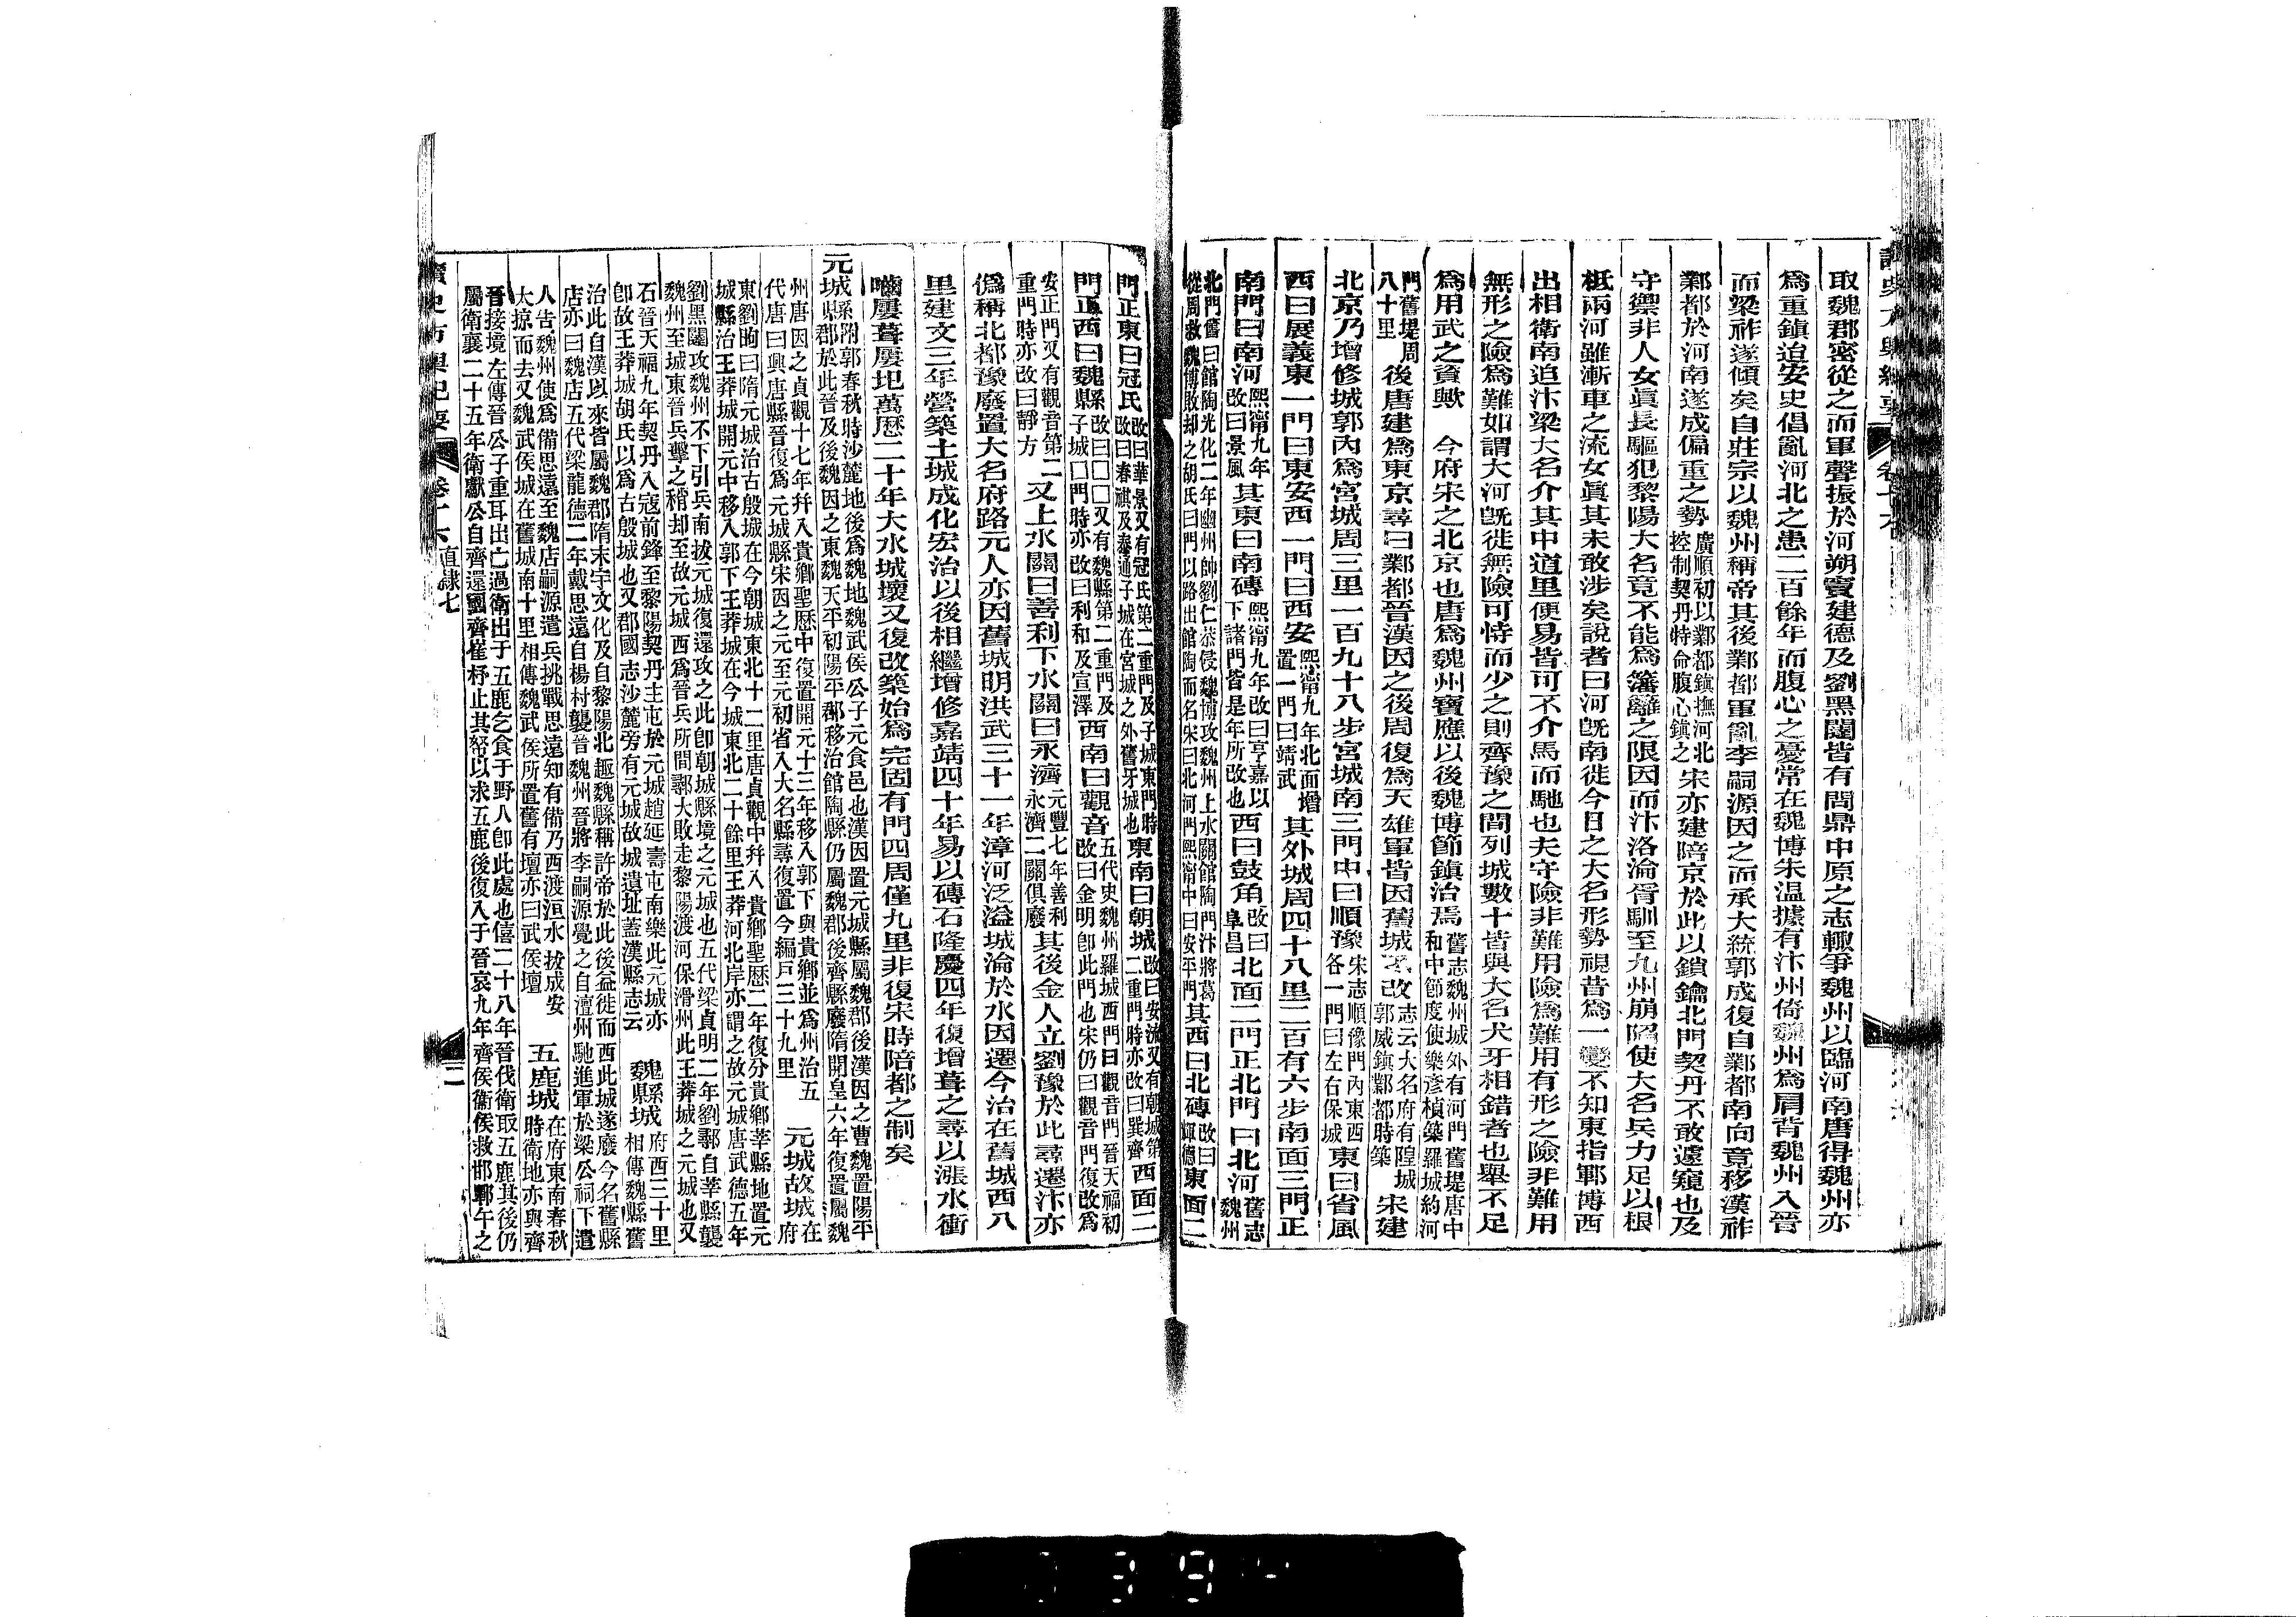 取魏郡密從之而軍聲振於河朔竇建德及劉黑闥皆有問鼎中原之志輒爭魏州以臨河南唐得魏州亦
爲重鎮迨安史倡亂河北之患二百餘年而腹心之憂常在魏博朱温據有汴州倚魏州爲肩背魏州入晉
而梁祚遂傾矣自莊宗以魏州稱帝其後鄴都軍亂李嗣源因之而承大統郭成復自鄴都南向竟移漢祚
鄴都於河南遂成偏重之勢廣順初以鄴都鎮撫河北控制契丹特命腹心鎮之宋亦建陪京於此以鎖鑰北門契丹不敢遽窺也及
守禦非人女眞長驅犯黎陽大名竟不能爲籓籬之限因而汴洛淪胥馴至九州崩陷使大名兵力足以根
柢兩河雖漸車之流女眞其未敢涉矣說者曰河旣南徙今日之大名形勢視昔爲一變不知東指鄆博西
出相衛南迫汴梁大名介其中道里便易皆可不介馬而馳也夫守險非難用險爲難用有形之險非難用
無形之險爲難如謂大河旣徙無險可恃而少之則齊豫之間列城數十皆與大名犬牙相錯者也舉不足
爲用武之資歟 今府宋之北京也唐爲魏州寶應以後魏博節鎮治焉舊志魏州城外有河門舊堤唐中和中節度使樂彦楨築羅城約河
門舊堤周八十里 後唐建爲東京尋曰鄴都晉漢因之後周復爲天雄軍皆因舊城不改志云大名府有隍城郭威鎮鄴都時築 宋建
北京乃增修城郭內爲宮城周三里一百九十八步宮城南三門中曰順豫宋志順豫門內東西各一門曰左右保城東曰省風
西曰展義東一門曰東安西一門曰西安熙甯九年北面增置一門曰靖武其外城周四十八里二百有六步南面三門正
南門曰南河熙甯九年改曰景風其東曰南磚熙甯九年改曰亨嘉以下諸門皆是年所改也西曰鼓角改曰阜昌北面二門正北門曰北河舊志魏州
北門舊曰館陶光化二年幽州帥劉仁恭侵魏博攻魏州上水關館陶門汴將葛從周救魏博敗却之胡氏曰門以路出館陶而名宋曰北河門熙甯中曰安平門其西曰北磚改曰輝德東面二
門正東曰冠氏改曰華景又有冠氏第二重門及子城東門時改曰春祺及泰通子城在宮城之外舊牙城也東南曰朝城改曰安流又有朝城第二重門時亦改曰巽齊西面二
門正西曰魏縣改曰□□又有魏縣第二重門及子城□門時亦改曰利和及宣澤西南曰觀音五代史魏州羅城西門曰觀音門晉天福初改曰金明卽此門也宋仍曰觀音門復改爲
安正門又有觀音第二重門時亦改曰靜方又上水關曰善利下水關曰永濟元豐七年善利永濟二關俱廢其後金人立劉豫於此尋遷汴亦
僞稱北都豫廢置大名府路元人亦因舊城明洪武三十一年漳河泛溢城淪於水因遷今治在舊城西八
里建文三年營築土城成化宏治以後相繼增修嘉靖四十年易以磚石隆慶四年復增葺之尋以漲水衝
嚙屢葺屢圯萬歷二十年大水城壞又復改築始爲完固有門四周僅九里非復宋時陪都之制矣
元城縣附郭春秋時沙麓地後爲魏地魏武侯公子元食邑也漢因置元城縣屬魏郡後漢因之曹魏置陽平郡於此晉及後魏因之東魏天平初陽平郡移治館陶縣仍屬魏郡後齊縣廢隋開皇六年復置屬魏
州唐因之貞觀十七年幷入貴鄉聖歷中復置開元十三年移入郭下與貴鄉並爲州治五代唐曰興唐縣晉復爲元城縣宋因之元至元初省入大名縣尋復置今編戸三十九里 元城故城在府
東劉昫曰隋元城治古殷城在今朝城東北十二里唐貞觀中幷入貴鄉聖歷二年復分貴鄉莘縣地置元城縣治王莽城開元中移入郭下王莽城在今城東北二十餘里王莽河北岸亦謂之故元城唐武德五年
劉黑闥攻魏州不下引兵南拔元城復還攻之此卽朝城縣境之元城也五代梁貞明二年劉鄩自莘縣襲魏州至城東晉兵躡之稍却至故元城西爲晉兵所間鄩大敗走黎陽渡河保滑州此王莽城之元城也又
石晉天福九年契丹入寇前鋒至黎陽契丹主屯於元城趙延壽屯南樂此元城亦卽故王莽城胡氏以爲古殷城也又郡國志沙麓旁有元城故城遺址蓋漢縣志云 魏縣城府西三十里相傳魏縣舊
治此自漢以來皆屬魏郡隋末宇文化及自黎陽北趣魏縣稱許帝於此後益徙而西此城遂廢今名舊縣店亦曰魏店五代梁龍德二年戴思遠自楊村襲晉魏州晉將李嗣源覺之自澶州馳進軍於梁公祠下遣
人告魏州使爲備思遠至魏店嗣源遣兵挑戰思遠知有備乃西渡洹水拔成安大掠而去又魏武侯城在舊城南十里相傳魏武侯所置舊有壇亦曰武侯壇 五鹿城在府東南春秋時衛地亦與齊
晉接境左傳晉公子重耳出亡過衛出于五鹿乞食于野人卽此處也僖二十八年晉伐衛取五鹿其後仍屬衛襄二十五年衛獻公自齊還國齊崔杼止其帑以求五鹿後復入于晉哀九年齊侯衞侯救邯鄲午之
讀史方輿紀要 卷十六 直隸七 二